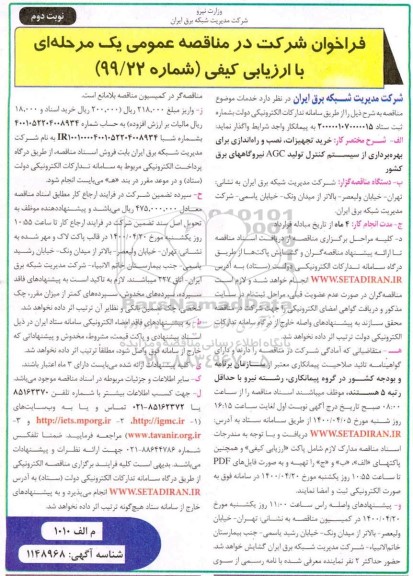 وزارت نیرو
شرکت مدیریت شبکه برق ایران
نوبت دوم
فراخوان شرکت در مناقصه عمومی یک مرحله‌ای
با ارزیابی کیفی (شماره ۹۹/۲۲)
شرکت مدیریت شبکه برق ایران در نظر دارد خدمات موضوع
مناقصه به شرح ذیل را از طریق سامانه تدارکات الکترونیکی دولت بشماره
ثبت ستاد ۲۰۰۰۰۰۱۰۷۰۰۰۰۱۵ به پیمانکار واجد شرایط واگذار نماید:
الف- شرح مختصر کار: خرید تجهیزات، نصب و راه‌اندازی برای
بهره‌برداری از سیستم کنترل تولید AGC نیروگاههای برق
کشور
ب- دستگاه مناقصه‌گزار: شرکت مدیریت شبکه برق ایران به نشانی،
تهران- خیابان ولیعصر- بالاتر از میدان ونک- خیابان یاسمی- شرکت
مدیریت شبکه برق ایران.
ج- مدت انجام کار: ۴ ماه از تاریخ مبادله قرارداد.
د- کلیه مراحل برگزاری مناقصه از دریافت اسناد مناقصه
تا ارائه پیشنهاد مناقصه‌گران و گشایش پاکت‌ها از طریق
درگاه سامانه تدارکات الکترونیکی دولت (ستاد) به آدرس
WWW.SETADIRAN.IR انجام خواهد شد و لازم است
مناقصه‌گران در صورت عدم عضویت قبلی مراحل ثبت‌نام در سایت
مذکور و دریافت گواهی امضای الکترونیکی را جهت شرکت در مناقصه
محقق سازند به پیشنهادهای واصله خارج از درگاه سامانه تدارکات
الکترونیکی دولت ترتیب اثر داده نخواهد شد.
هـ- متقاضیانی که آمادگی شرکت در مناقصه را دارند و دارای
گواهینامه تائید صلاحیت پیمانکاری معتبر از سازمان برنامه
و بودجه کشور در گروه پیمانکاری، رشته نیرو با حداقل
رتبه ۵ هستند، موظف میباشند اسناد مناقصه را از ساعت
۰۸:۰۰ صبح تاریخ درج آگهی نوبت اول لغایت ساعت ۱۶:۱۵
روز شنبه مورخ ۱۴۰۰/۰۴/۰۵ از طریق سامانه ستاد به آدرس:
WWW.SETADIRAN.IR دریافت و با توجه به مندرجات
اسناد مناقصه مدارک لازم شامل پاکت «ارزیابی کیفی» و همچنین
پاکتهای «الف»، «ب» و «ج» را تهیه و به صورت فایل‌های PDF
تا ساعت ۱۰:۵۵ روز یکشنبه مورخ ۱۴۰۰/۰۴/۲۰ در سامانه فوق به
صورت الکترونیکی ثبت و امضا نمایند.
و- پیشنهادهای واصله راس ساعت ۱۱:۰۰ روز یکشنبه مورخ
۱۴۰۰/۰۴/۲۰ در کمیسیون مناقصه به نشانی: تهران- خیابان
ولیعصر- بالاتر از میدان ونک- خیابان رشید یاسمی- جنب بیمارستان
خاتم‌الانبیاء- شرکت مدیریت شبکه برق ایران گشایش خواهد شد.
حضور حداکثر ۲ نفر نماینده معرفی شده با نامه رسمی از سوی
مناقصه‌گر در کمیسیون مناقصه بلامانع است.
ز- واریز مبلغ ۲۱۸,۰۰۰ ریال (۲۰۰,۰۰۰ ریال خرید اسناد و ۱۸,۰۰۰
ریال مالیات بر ارزش افزوده) به حساب شماره ۴۰۰۱۰۵۲۲۰۴۰۰۸۹۳۴
بشماره شبا به نام شرکت
مدیریت شبکه برق ایران بابت فروش اسناد مناقصه، از طریق درگاه
پرداخت الکترونیکی مربوط به سامانه تدارکات الکترونیکی دولت
(ستاد) و در موعد مقرر در بند «هـ» می‌بایست انجام شود.
ح- سپرده تضمین شرکت در فرایند ارجاع کار مطابق اسناد مناقصه
معادل ۴۷۵,۰۰۰,۰۰۰ ریال می‌باشد و پیشنهاددهنده موظف به
تحویل اصل سند تضمین شرکت در فرایند ارجاع کار تا ساعت ۱۰:۵۵
روز یکشنبه مورخ ۱۴۰۰/۰۴/۲۰ در قالب پاکت لاک و مهر شده به
نشانی تهران- خیابان ولیعصر- بالاتر از میدان ونک- خیابان رشید
یاسمی- جنب بیمارستان خاتم الانبیاء- شرکت مدیریت شبکه برق
ایران- اتاق ۲۲۷ میباشند لازم به تاکید است به پیشنهادهای فاقد
سپرده، سپرده‌های مخدوش، سپرده‌های کمتر از میزان مقرر، چک
شخصی و نظایر آن ترتیب اثر داده نخواهد شد.
ط- به پیشنهادهای فاقد امضاء الکترونیکی سامانه ستاد ایران در ذیل
اسناد پیشنهادی و پاکت قیمت مشروط، مخدوش و پیشنهاداتی که
خارج از سامانه فوق واصل شود، مطلقاً ترتیب اثر داده نخواهد شد.
ارائه شده می‌بایست دارای ۳ ماه اعتبار باشند.
ک- سایر اطلاعات و جزئیات مربوطه در اسناد مناقصه موجود می‌باشد.
ل- جهت کسب اطلاعات بیشتر با شماره تلفن ۸۵۱۶۲۳۷۰
یا ۰۲۱-۸۵۱۶۲۳۷۲ تماس و یا به وب‌سایت‌های
۱- http://igmc.ir، ۲- http://iets.mporg.ir و ۳-
(www.tavanir.org.ir) مراجعه فرمایید. ضمنا تلفکس
شماره ۰۲۱-۸۸۶۴۴۷۸۶ جهت ارائه نظرات و پیشنهادات
می‌باشد. بدیهی است کلیه فرایند برگزاری مناقصه الکترونیکی
از طریق درگاه سامانه تدارکات الکترونیکی دولت (ستاد) به آدرس
WWW.SETADIRAN.IR انجام می‌پذیرد و به پیشنهادهای
خارج از سامانه ستاد هیچگونه ترتیب اثر داده نخواهد شد.
م الف ۱۰۱۰
شناسه آگهی: ۱۱۴۸۹۶۸